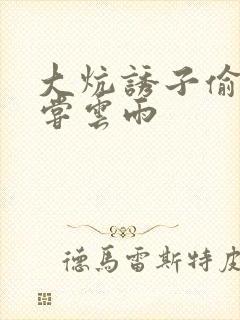 大炕誘子偷
嘗雲雨
德馬雷斯特皮